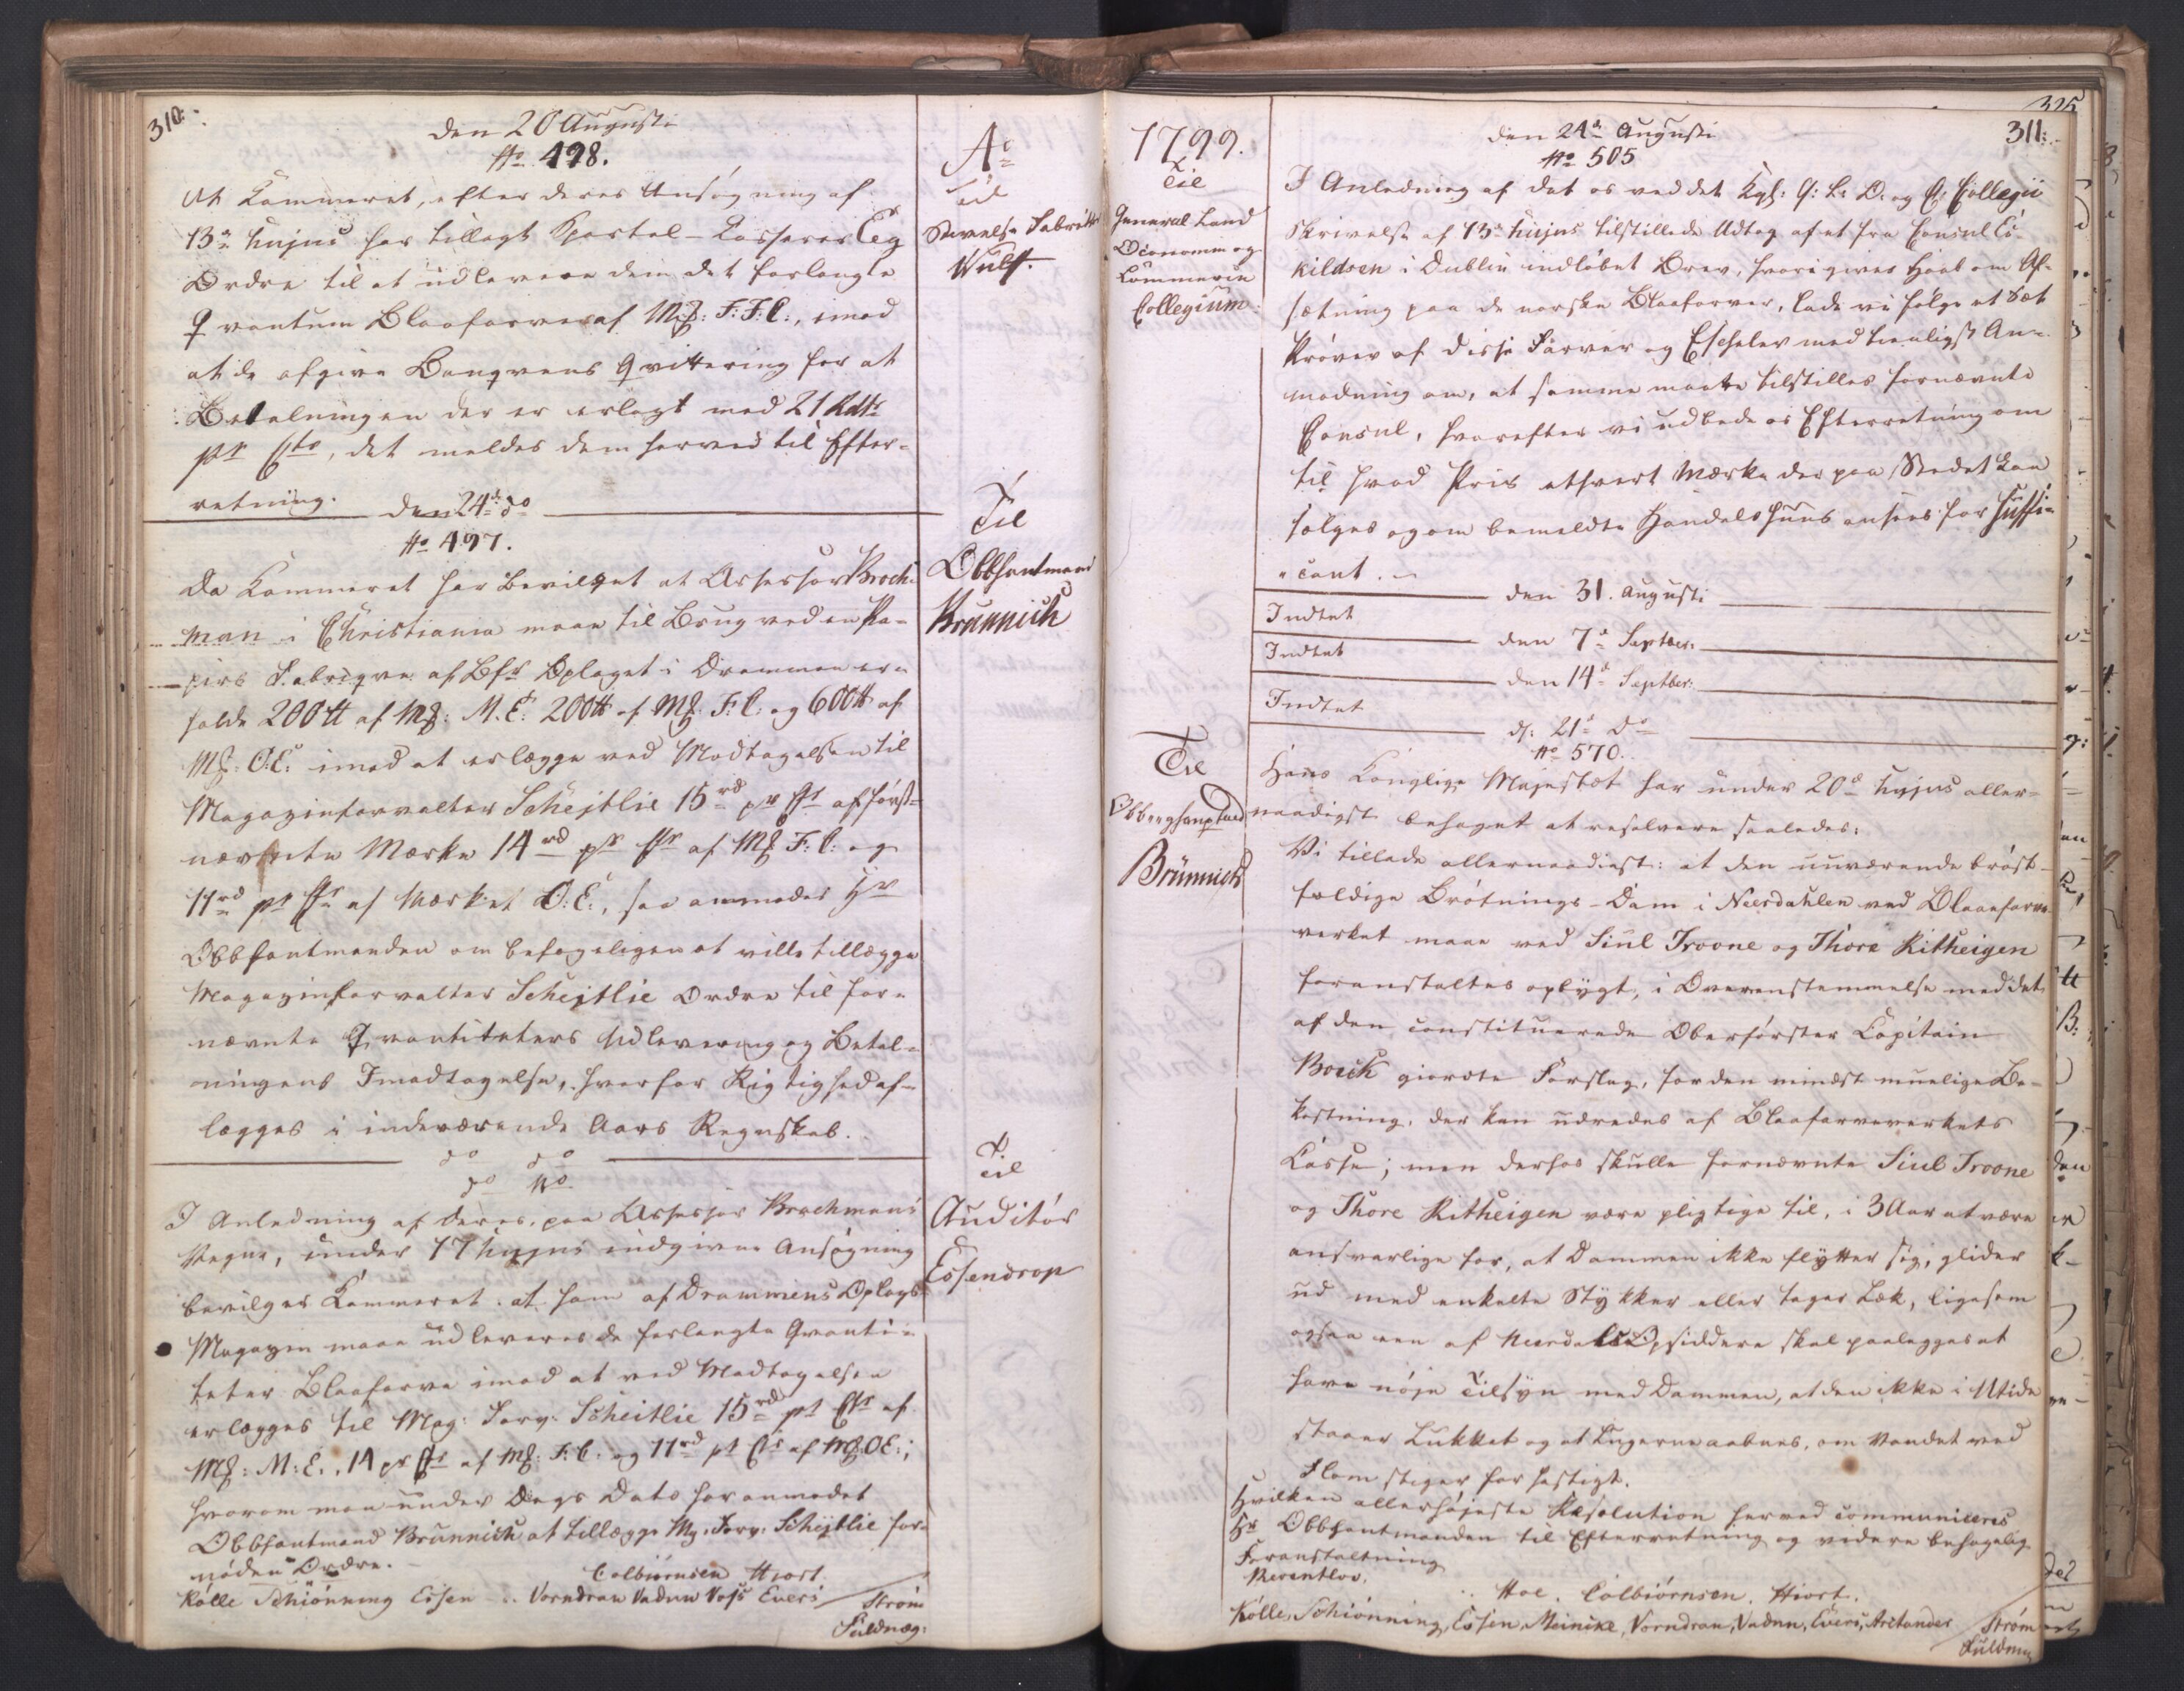 310.
den 20 Augusti
No 498.
At Kammeret, efter deres Ansøgning af
13de hujus har tillagt Sportel-Casserer Leg
Ordre til at udlevere dem det forlangte
Qvantum Blaafarve af Mk: F:F:C:, imod
at de afgive Banqvens Qvittering for at
Betalningen der er erlagt med 21 Rdlr
pr Ctr, det meldes dem herved til Efter-
retning.
Ao
Til
Stivelse Fabriks
Wulff.
den 24de do
No 497.
Da Kammeret har bevilget at Assessor Broch-
man i Christiania maae til Brug ved en Pa-
pirs Fabriqve af Bfr Oplaget i Drammen er-
holde 200 tt af Mk: M.E: 200 tt af Mk: F:C: og 600 tt af
Mk: O:E: imod at erlægge ved Modtagelsen til
Magazinforvalter Schejtlie 15 rd pr Ctr af først-
nævnte Mærke 14 rd pr Ctr af Mk F:C: og
11 rd pr Ctr af Mærket O:E:, saa anmodes Hr
Obbhautmanden om behageligen at ville tillægge
Magazinforvalter Schejtlie Ordre til for-
nævnte Qvantiteters Udlevering og Betal-
ningens Imodtagelse, hvorfor Rigtighed af-
lægges i indeværende Aars Regnskab.
Til
Obbhautmand
Brünnich
do do
do No
I Anledning af deres, paa Assessor Brochmans
Vegne, under 17 hujus indgivne Ansøgning
bevilger Kammeret at ham af Drammens Oplags
Magazin maae udleveres de forlangte Qvanti-
teter Blaafarve imod at ved Modtagelsen
erlægges til Mag: Forv: Scheitlie 15 rd pr Ctr af
Mk: M:E:, 14 pr Ctr af Mk: F:C: og 11 rd pr Ctr af Mk OE:;
hvorom man under Dags Dato har anmodet
Obbhautmand Brünnich at tillægge Mg: Forv: Schejtlie for-
nøden Ordre.
Til
Auditør
Essendrop
Colbiørnsen Hiort
Kølle Schiønning Essen Vorndran Vadum Voss Evers / Strøm
Fuldmæg:
325
311:
1799.
Til
General Land
Oeconomie og
Commercie
Collegium.
den 24de Augusti
No 505
I Anledning af det os ved det Kgl: G: L: O: og C: Collegii
Skrivelse af 13de hujus tilstillede Udtog af et fra Consul Es-
kildsen i Dublin indløbet Brev, hvori gives Haab om Af-
sætning paa de norske Blaafarver, lade vi følge et Sæt
Prøver af disse Farver og Eschelen med tienligst An-
modning om, at samme maatte tilstilles fornævnte
Consul, hvorefter vi udbede os Efterretning om
til hvad Priis ethvert Mærke der paa Stedet kan
sælges og om bemeldte Handelshuus ansees for suffi-
cant.
den 31. Augusti
Indtet
den 7de Septber:
Indtet
den 14de Septber:
Indtet
d: 21de Do
No 570.
Til
Obberghauptmd
Brünnich
Hans Konglige Majestæt har under 20de hujus aller-
naadigst behaget at resolvere saaledes:
Vi tillade allernaadigst: at den nuværende brøst-
fældige Brøtnings-Dam i Neerdahlen ved Blaafarve-
verket maae ved Siul Froone og Thore Kitheigen
foranstaltes opbygt, i Overensstemmelse med det
af den constituerede Oberførster Capitain
Boeck giorte Forslag, for den mindst muelige Be-
kostning, der kan udredes af Blaafarveverkets
Casse; men derhos skulle fornævnte Siul Froone
og Thore Kitheigen være pligtige til, i 3 Aar at være
ansvarlige for, at Dammen ikke flytter sig, glider
ud med enkelte Stykker eller tager Læk, ligesom
ogsaa een af Neerdalens Opsiddere skal paalegges at
have nøje Tilsyn med Dammen, at den ikke i Utide
staaer Lukket og at Lugerne aabnes, om Vandet ved
Flom stiger for hastigt.
Hvilken allerhøjeste Resolution herved communiceres
Hr Obbhautmanden til Efterretning og videre behagelig
Foranstaltning
Reventlov.
Hoe. Colbiørnsen. Hiort.
Kølle, Schiønning, Essen, Meincke, Vorndran, Vadum, Evers, Arctander / Strøm
Fuldmæg